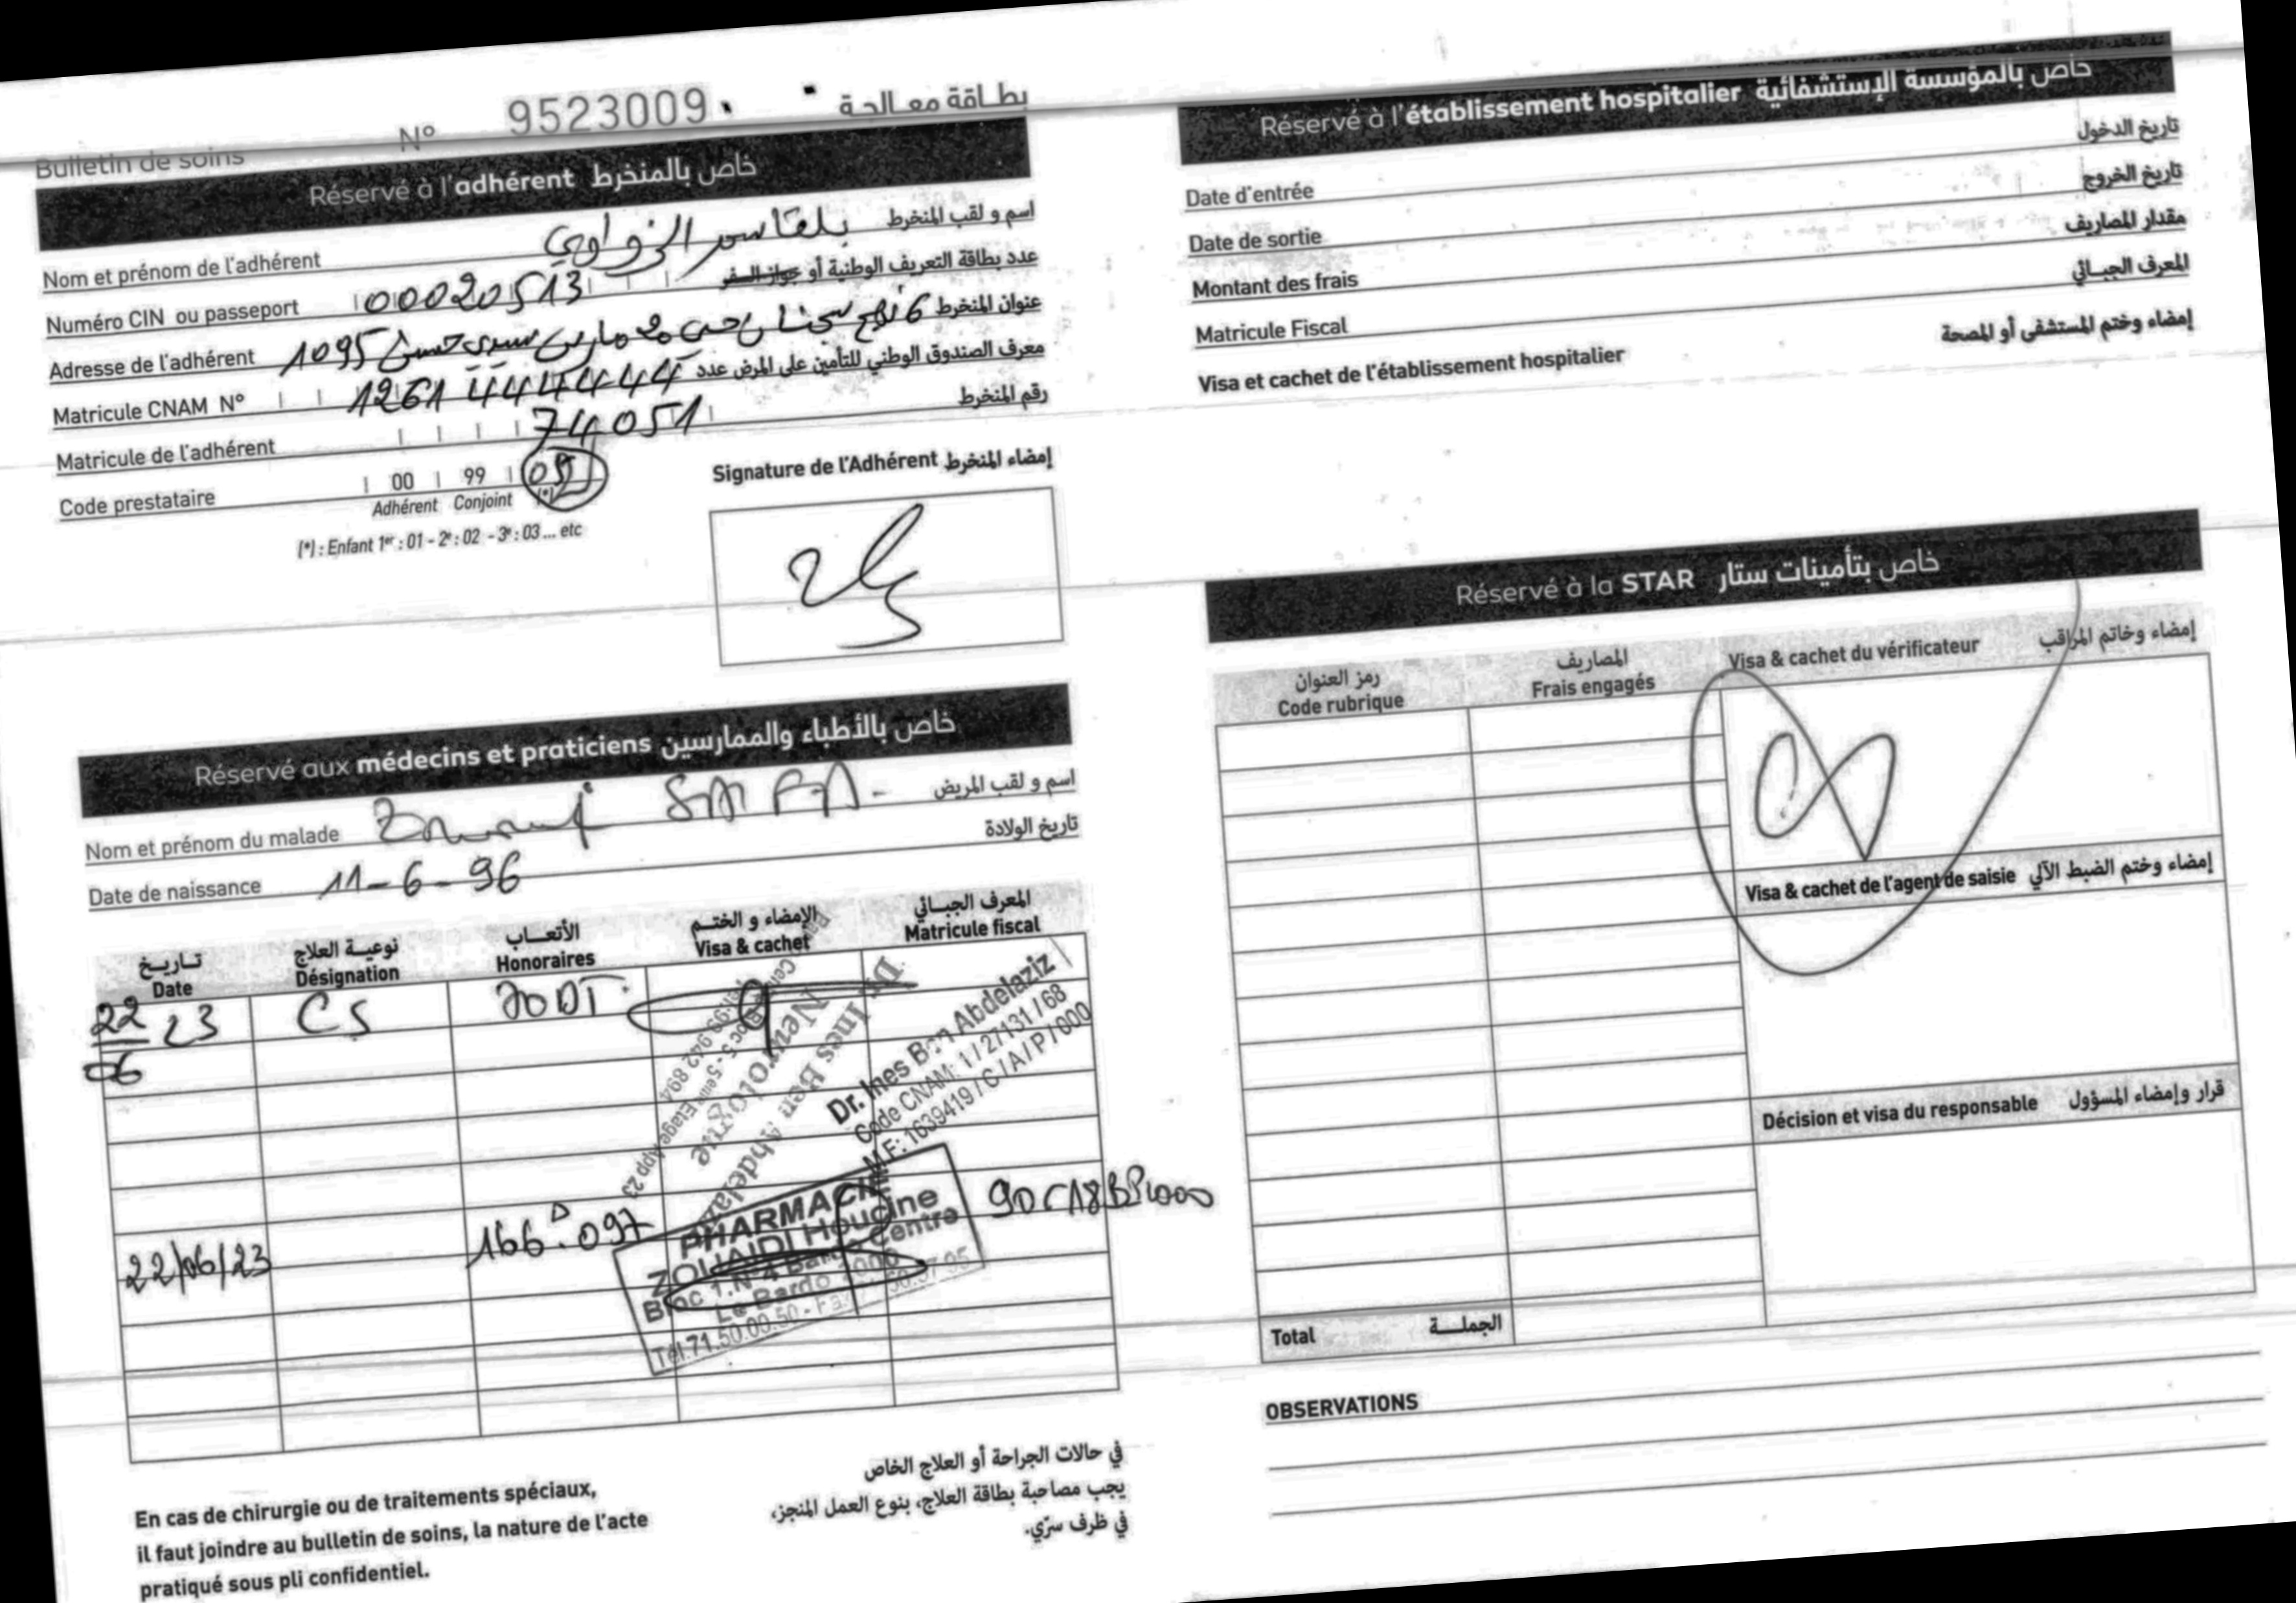 Bulletin de soins N° 9523009 بطاقة معالجة
Réservé à l'adhérent خاص بالمنخرط
Nom et prénom de l'adhérent بلقاسم الزواوي اسم و لقب المنخرط
Numéro CIN ou passeport 00020513 عدد بطاقة التعريف الوطنية أو جواز السفر
Adresse de l'adhérent 1095 سيدي حسين 6 نهج عنوان المنخرط
Matricule CNAM N° 1261 معرف الصندوق الوطني للتأمين على المرض عدد
Matricule de l'adhérent 74051 رقم المنخرط
Code prestataire 00 99
Adhérent Conjoint (*)
(*) : Enfant 1er : 01 - 2e : 02 - 3e : 03 ... etc
Signature de l'Adhérent إمضاء المنخرط
Réservé aux médecins et praticiens خاص بالأطباء والممارسين
Nom et prénom du malade اسم و لقب المريض
Date de naissance 11-6-96 تاريخ الولادة
تاريخ نوعية العلاج الأتعاب الإمضاء و الختم المعرف الجبائي
Date Désignation Honoraires Visa & cachet Matricule fiscal
22 23 CS 70DT
06
Dr. Ines Ben Abdelaziz
Neurologie
Bloc 5 - 5 eme Etage App 23
99 942 894
Dr. Ines Ben Abdelaziz
Code CNAM: 1 / 27131 / 68
M.F: 1639419 / C / A / P / 000
22/06/23 166.097
PHARMACIE
ZOUAIDI Houcine
Bloc 1.N°4 Bardo Centre
Le Bardo 2000
Tél.71.50.00.50
En cas de chirurgie ou de traitements spéciaux,
il faut joindre au bulletin de soins, la nature de l'acte
pratiqué sous pli confidentiel.
في حالات الجراحة أو العلاج الخاص
يجب مصاحبة بطاقة العلاج، بنوع العمل المنجز،
في ظرف سرّي.
Réservé à l'établissement hospitalier خاص بالمؤسسة الإستشفائية
Date d'entrée تاريخ الدخول
Date de sortie تاريخ الخروج
Montant des frais مقدار المصاريف
Matricule Fiscal المعرف الجبائي
Visa et cachet de l'établissement hospitalier إمضاء وختم المستشفى أو المصحة
Réservé à la STAR خاص بتأمينات ستار
رمز العنوان المصاريف
Code rubrique Frais engagés Visa & cachet du vérificateur إمضاء وخاتم المراقب
Visa & cachet de l'agent de saisie إمضاء وختم الضبط الآلي
Décision et visa du responsable قرار وإمضاء المسؤول
Total الجملة
OBSERVATIONS